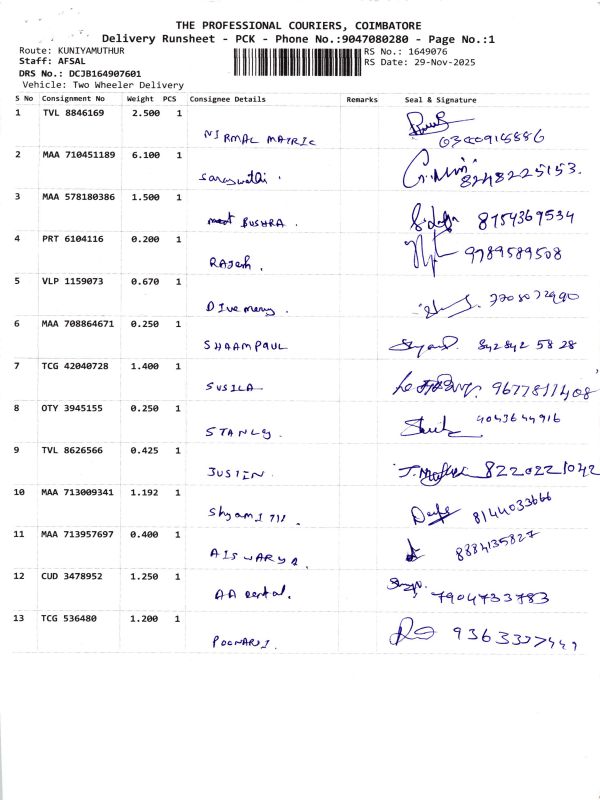 THE PROFESSIONAL COURIERS, COIMBATORE
Delivery Runsheet - PCK - Phone No.:9047080280 - Page No.:1
Route: KUNIYAMUTHUR RS No.: 1649076
Staff: AFSAL RS Date: 29-Nov-2025
DRS No.: DCJB164907601
Vehicle: Two Wheeler Delivery
S No Consignment No Weight PCS Consignee Details Remarks Seal & Signature
1 TVL 8846169 2.500 1
NIRMAL MATRIC
2 MAA 710451189 6.100 1
Saraswathi . 8248225153.
3 MAA 578180386 1.500 1
BUSHRA . 8754369534
4 PRT 6104116 0.200 1
RAJesh . 9789589508
5 VLP 1159073 0.670 1
6 MAA 708864671 0.250 1
SHAAMPAUL 842842 58 28
7 TCG 42040728 1.400 1
SUSILA 9677811408
8 OTY 3945155 0.250 1
STANLy .
9 TVL 8626566 0.425 1
JUSTIN . 8220221042
10 MAA 713009341 1.192 1
8144033666
11 MAA 713957697 0.400 1
AISWARYA . 8884135827
12 CUD 3478952 1.250 1
AA 7904733783
13 TCG 536480 1.200 1